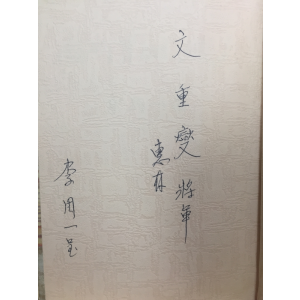 文重燮將軍
惠存
李用一呈